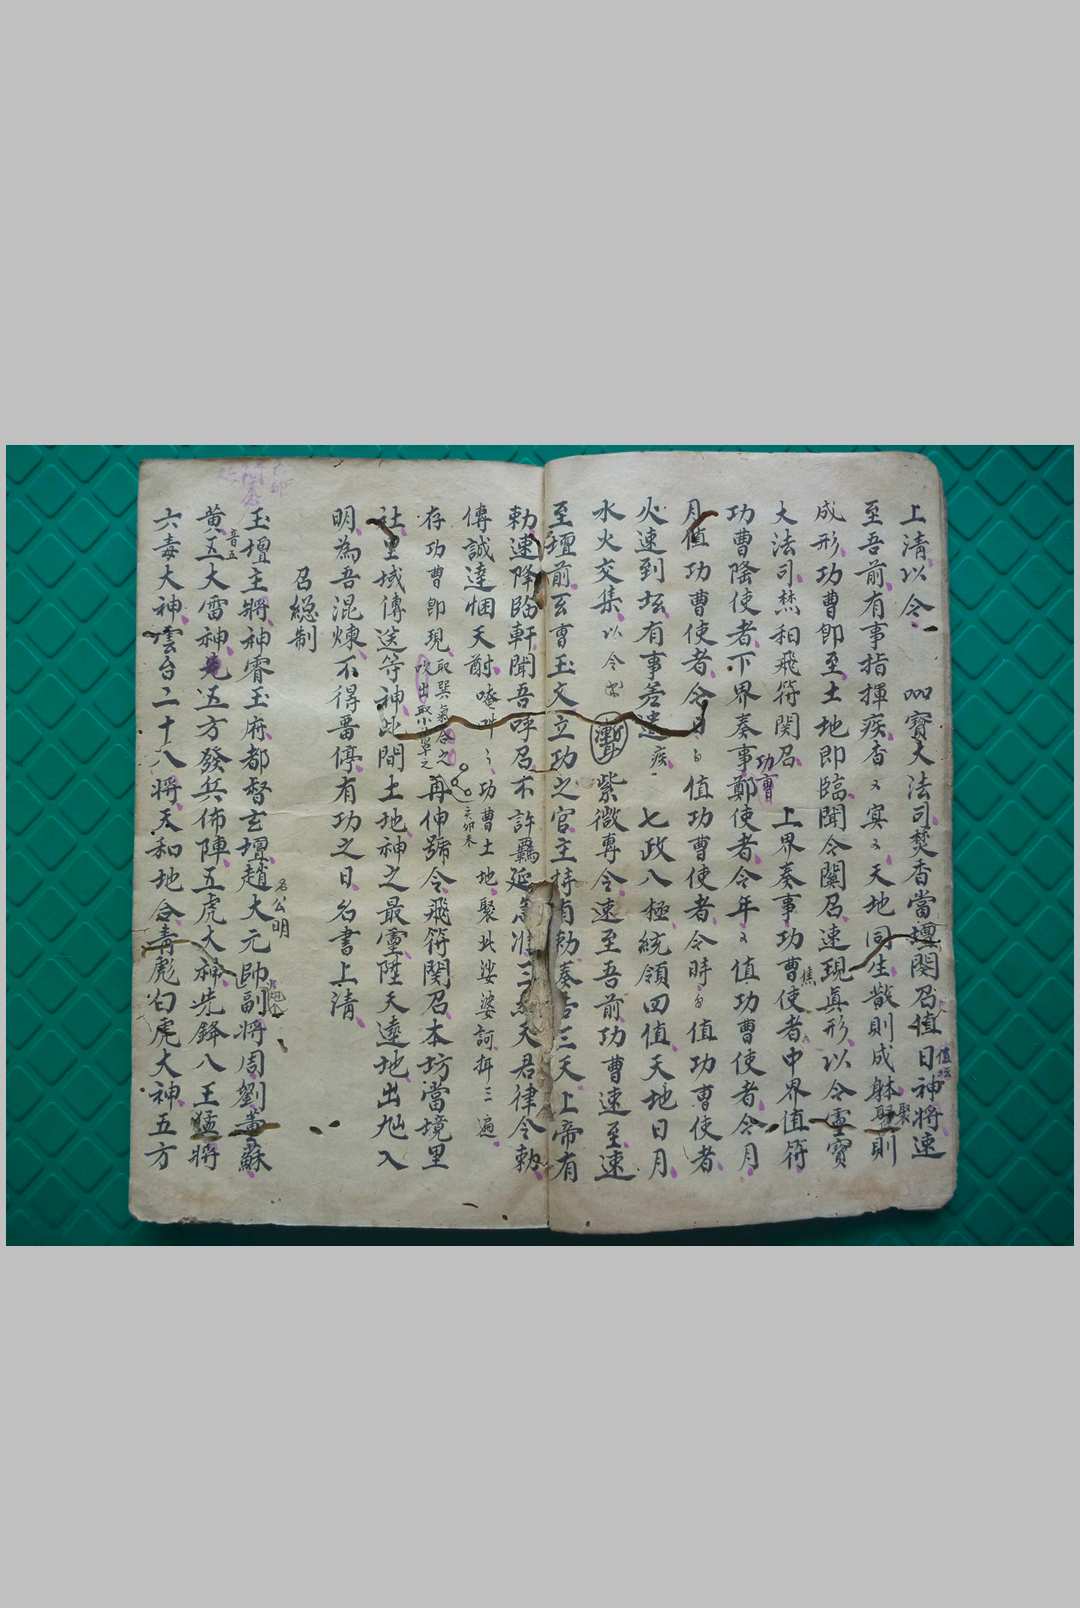 上清以令 吅寶大法司焚香當壇関召值日神將速
至吾前有事指揮疾香々冥々天地同生散則成躰聚則
成形功曹即至土地即臨聞令關召速現真形以令靈寶
大法司焚和飛符関召 上界奏事功曹使者中界值符
功曹
功曹陰使者下界奏事鄭使者令年々值功曹使者令月
月值功曹使者令日日值功曹使者令時日值功曹使者
火速到坛有事差遣疾 七政八極統領四值天地日月
水火交集以令 紫微專令速至吾前功曹速至速
至壇前玄曹玉文立功之官主持有勅奏告三天上帝有
勅速降臨軒聞吾呼召不許羈延急准三天君律令勅
傳誠達悃天酧 功曹土地聚此娑婆訶 三遍
存功曹即現取巽氣吞之吹出取小草之 再伸號令飛符関召本坊當境里
社里域傳送等神此間土地神之最靈陞天達地出地入
明為吾混煉不得畱停有功之日名書上清
召緫制
玉壇主將神霄玉府都督玄壇趙大元帥副將周劉黃蘇
名公明
黄五大雷神 五方發兵佈陣五虎大神先鋒八王猛將
六毒大神雲台二十八將天和地合青彪白虎大神五方